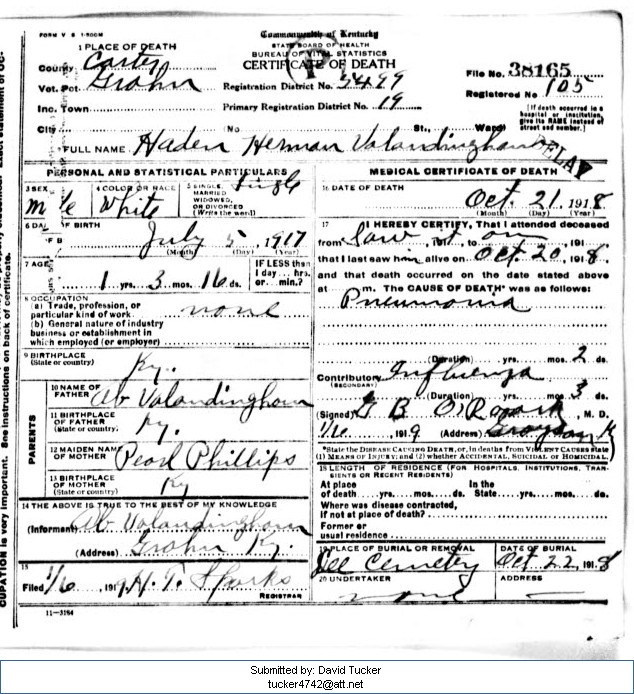 FORM V S 1-500M
Commonwealth of Kentucky
STATE BOARD OF HEALTH
BUREAU OF VITAL STATISTICS
CERTIFICATE OF DEATH
1 PLACE OF DEATH
County Carter
Vot. Pct Grahn
Inc. Town
City
Registration District No.
Primary Registration District No. 19
(No St., Ward)
File No. 38165
Registered No 105
[If death occurred in a hospital or institution, give its NAME instead of street and number.]
2 FULL NAME Haden Herman Valandingham
PERSONAL AND STATISTICAL PARTICULARS
3 SEX Male
4 COLOR OR RACE White
5 SINGLE, MARRIED WIDOWED, OR DIVORCED (Write the word) Single
6 DATE OF BIRTH
July 5, 1917
(Month) (Day) (Year)
7 AGE
1 yrs. 3 mos. 16 ds.
IF LESS than 1 day... hrs. or... min.?
8 OCCUPATION
(a) Trade, profession, or particular kind of work none
(b) General nature of industry business or establishment in which employed (or employer)
9 BIRTHPLACE
(State or country) Ky.
PARENTS
10 NAME OF FATHER Ab Valandingham
11 BIRTHPLACE OF FATHER (State or country) Ky.
12 MAIDEN NAME OF MOTHER Pearl Phillips
13 BIRTHPLACE OF MOTHER (State or country) Ky
14 THE ABOVE IS TRUE TO THE BEST OF MY KNOWLEDGE
(Informant) Ab Valandingham
(Address) Grahn Ky.
15
Filed 1/6, 1919 H. T. Sparks
REGISTRAR
11-3184
MEDICAL CERTIFICATE OF DEATH
16 DATE OF DEATH
Oct. 21, 1918
(Month) (Day) (Year)
17 I HEREBY CERTIFY, That I attended deceased
from, 191 to, 191
that I last saw him alive on Oct 20, 1918,
and that death occurred on the date stated above
at m. The CAUSE OF DEATH* was as follows:
Pneumonia
(Duration) yrs. mos. 2 ds.
Contributory Influenza
(SECONDARY)
(Duration) yrs. mos. 3 ds.
(Signed) G B O'Roark, M. D.
1/6, 1919 (Address) Grayson Ky
*State the DISEASE CAUSING DEATH, or, in deaths from VIOLENT CAUSES state (1) MEANS OF INJURY; and (2) whether ACCIDENTAL, SUICIDAL or HOMICIDAL.
18 LENGTH OF RESIDENCE (FOR HOSPITALS, INSTITUTIONS, TRANSIENTS OR RECENT RESIDENTS)
At place of death yrs. mos. ds. In the State yrs. mos. ds.
Where was disease contracted, if not at place of death?
Former or usual residence
19 PLACE OF BURIAL OR REMOVAL
Cemetery
DATE OF BURIAL
Oct 22, 1918
20 UNDERTAKER
none
ADDRESS
CUPATION is very important. See instructions on back of certificate.
Submitted by: David Tucker
tucker4742@att.net